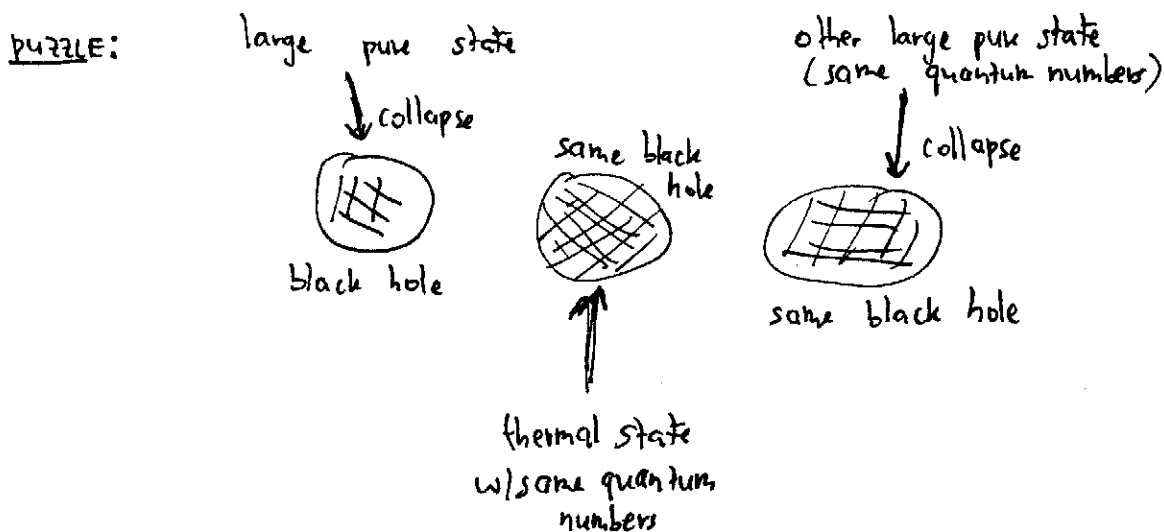 PUZZLE:
large pure state
collapse
black hole
same black
hole
thermal state
w/same quantum
numbers
other large pure state
(same quantum numbers)
collapse
same black hole